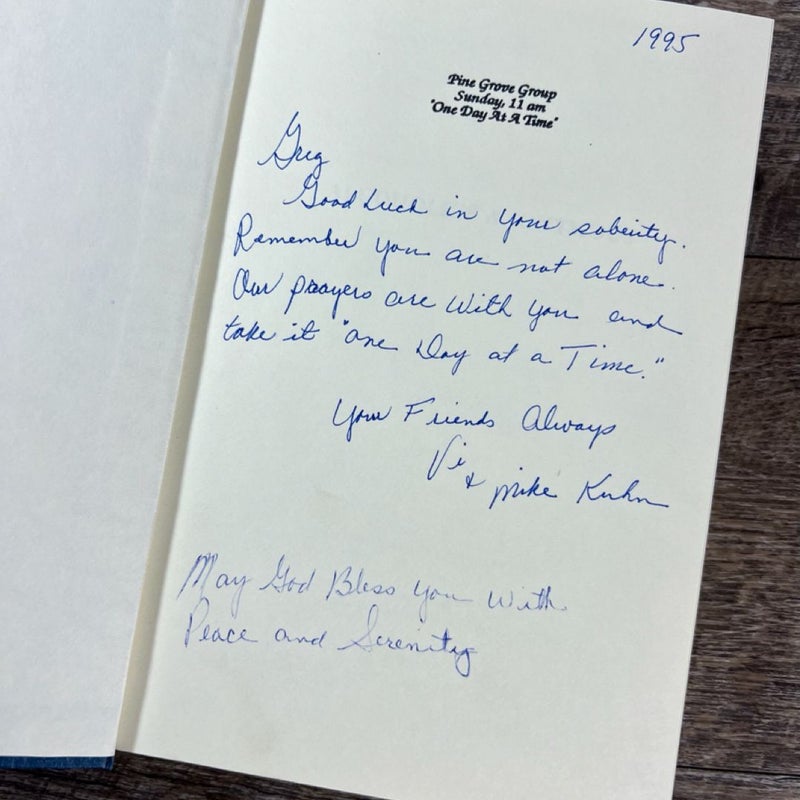 1995
Pine Grove Group
Sunday, 11 am
"One Day At A Time"
Greg
Good Luck in your sobeity.
Remember you are not alone.
Our prayers are with you and
take it "one Day at a Time."
Your Friends Always
Vi
& Mike Kuhn
May God Bless You With
Peace and Serenity